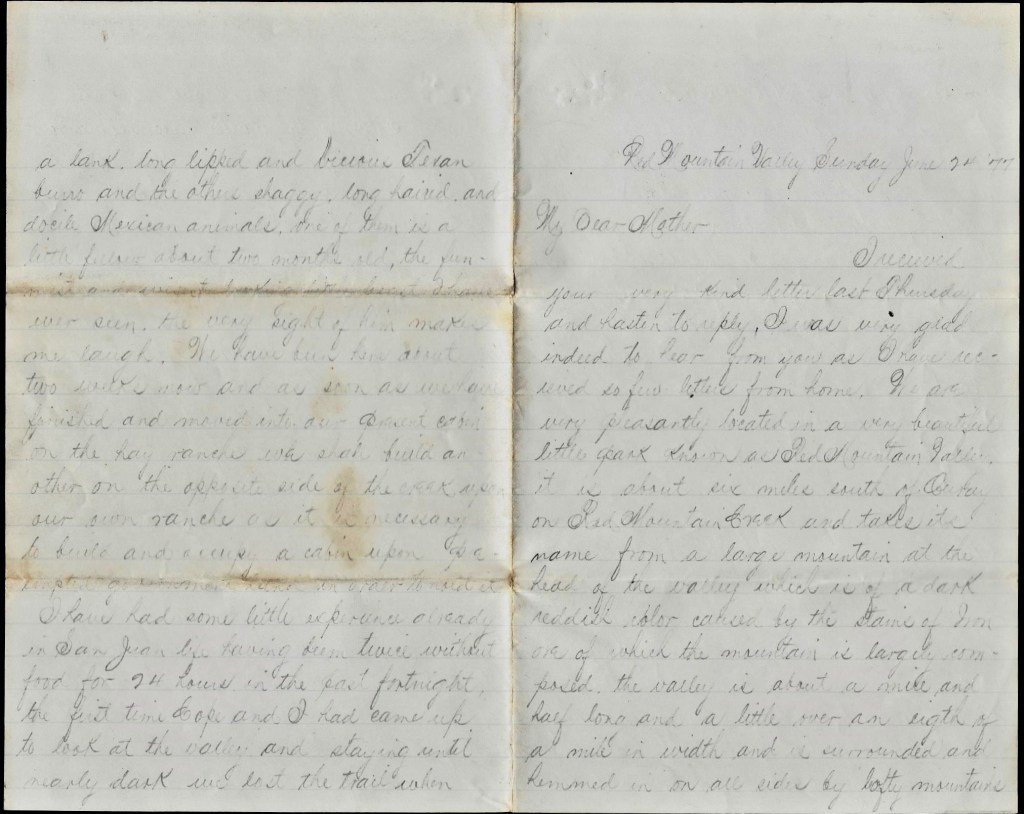 Red Mountain Valley Sunday June 24 '77
My Dear Mother
I received
your very kind letter last Thursday
and hasten to reply, I was very glad
indeed to hear from you as I have rec-
ieved so few letters from home. We are
very pleasantly located in a very beautiful
little park known as Red Mountain Valley.
it is about six miles south of Ouray
on Red Mountain Creek and takes its
name from a large mountain at the
head of the valley which is of a dark
reddish color caused by the stains of Iron
ore of which the mountain is largely com-
posed. the valley is about a mile and
half long and a little over an eigth of
a mile in width and is surrounded and
hemmed in on all sides by lofty mountains
a lank. long lipped and Vicious Texan
burro and the others shaggy, long haired, and
docile Mexican animals. one of them is a
little fellow about two months old, the fun-
niest looking little beast I have
ever seen. the very sight of him makes
me laugh. We have been here about
two weeks now and as soon as we have
finished and moved into our present cabin
on the hay ranche we shall build an
other on the opposite side of the creek upon
our own ranche as it is necessary
to build and occupy a cabin upon
government land in order to hold it
I have had some little experience already
in San Juan life having been twice without
food for 24 hours in the past fortnight.
the first time Cope and I had came up
to look at the valley and staying until
nearly dark we lost the trail when